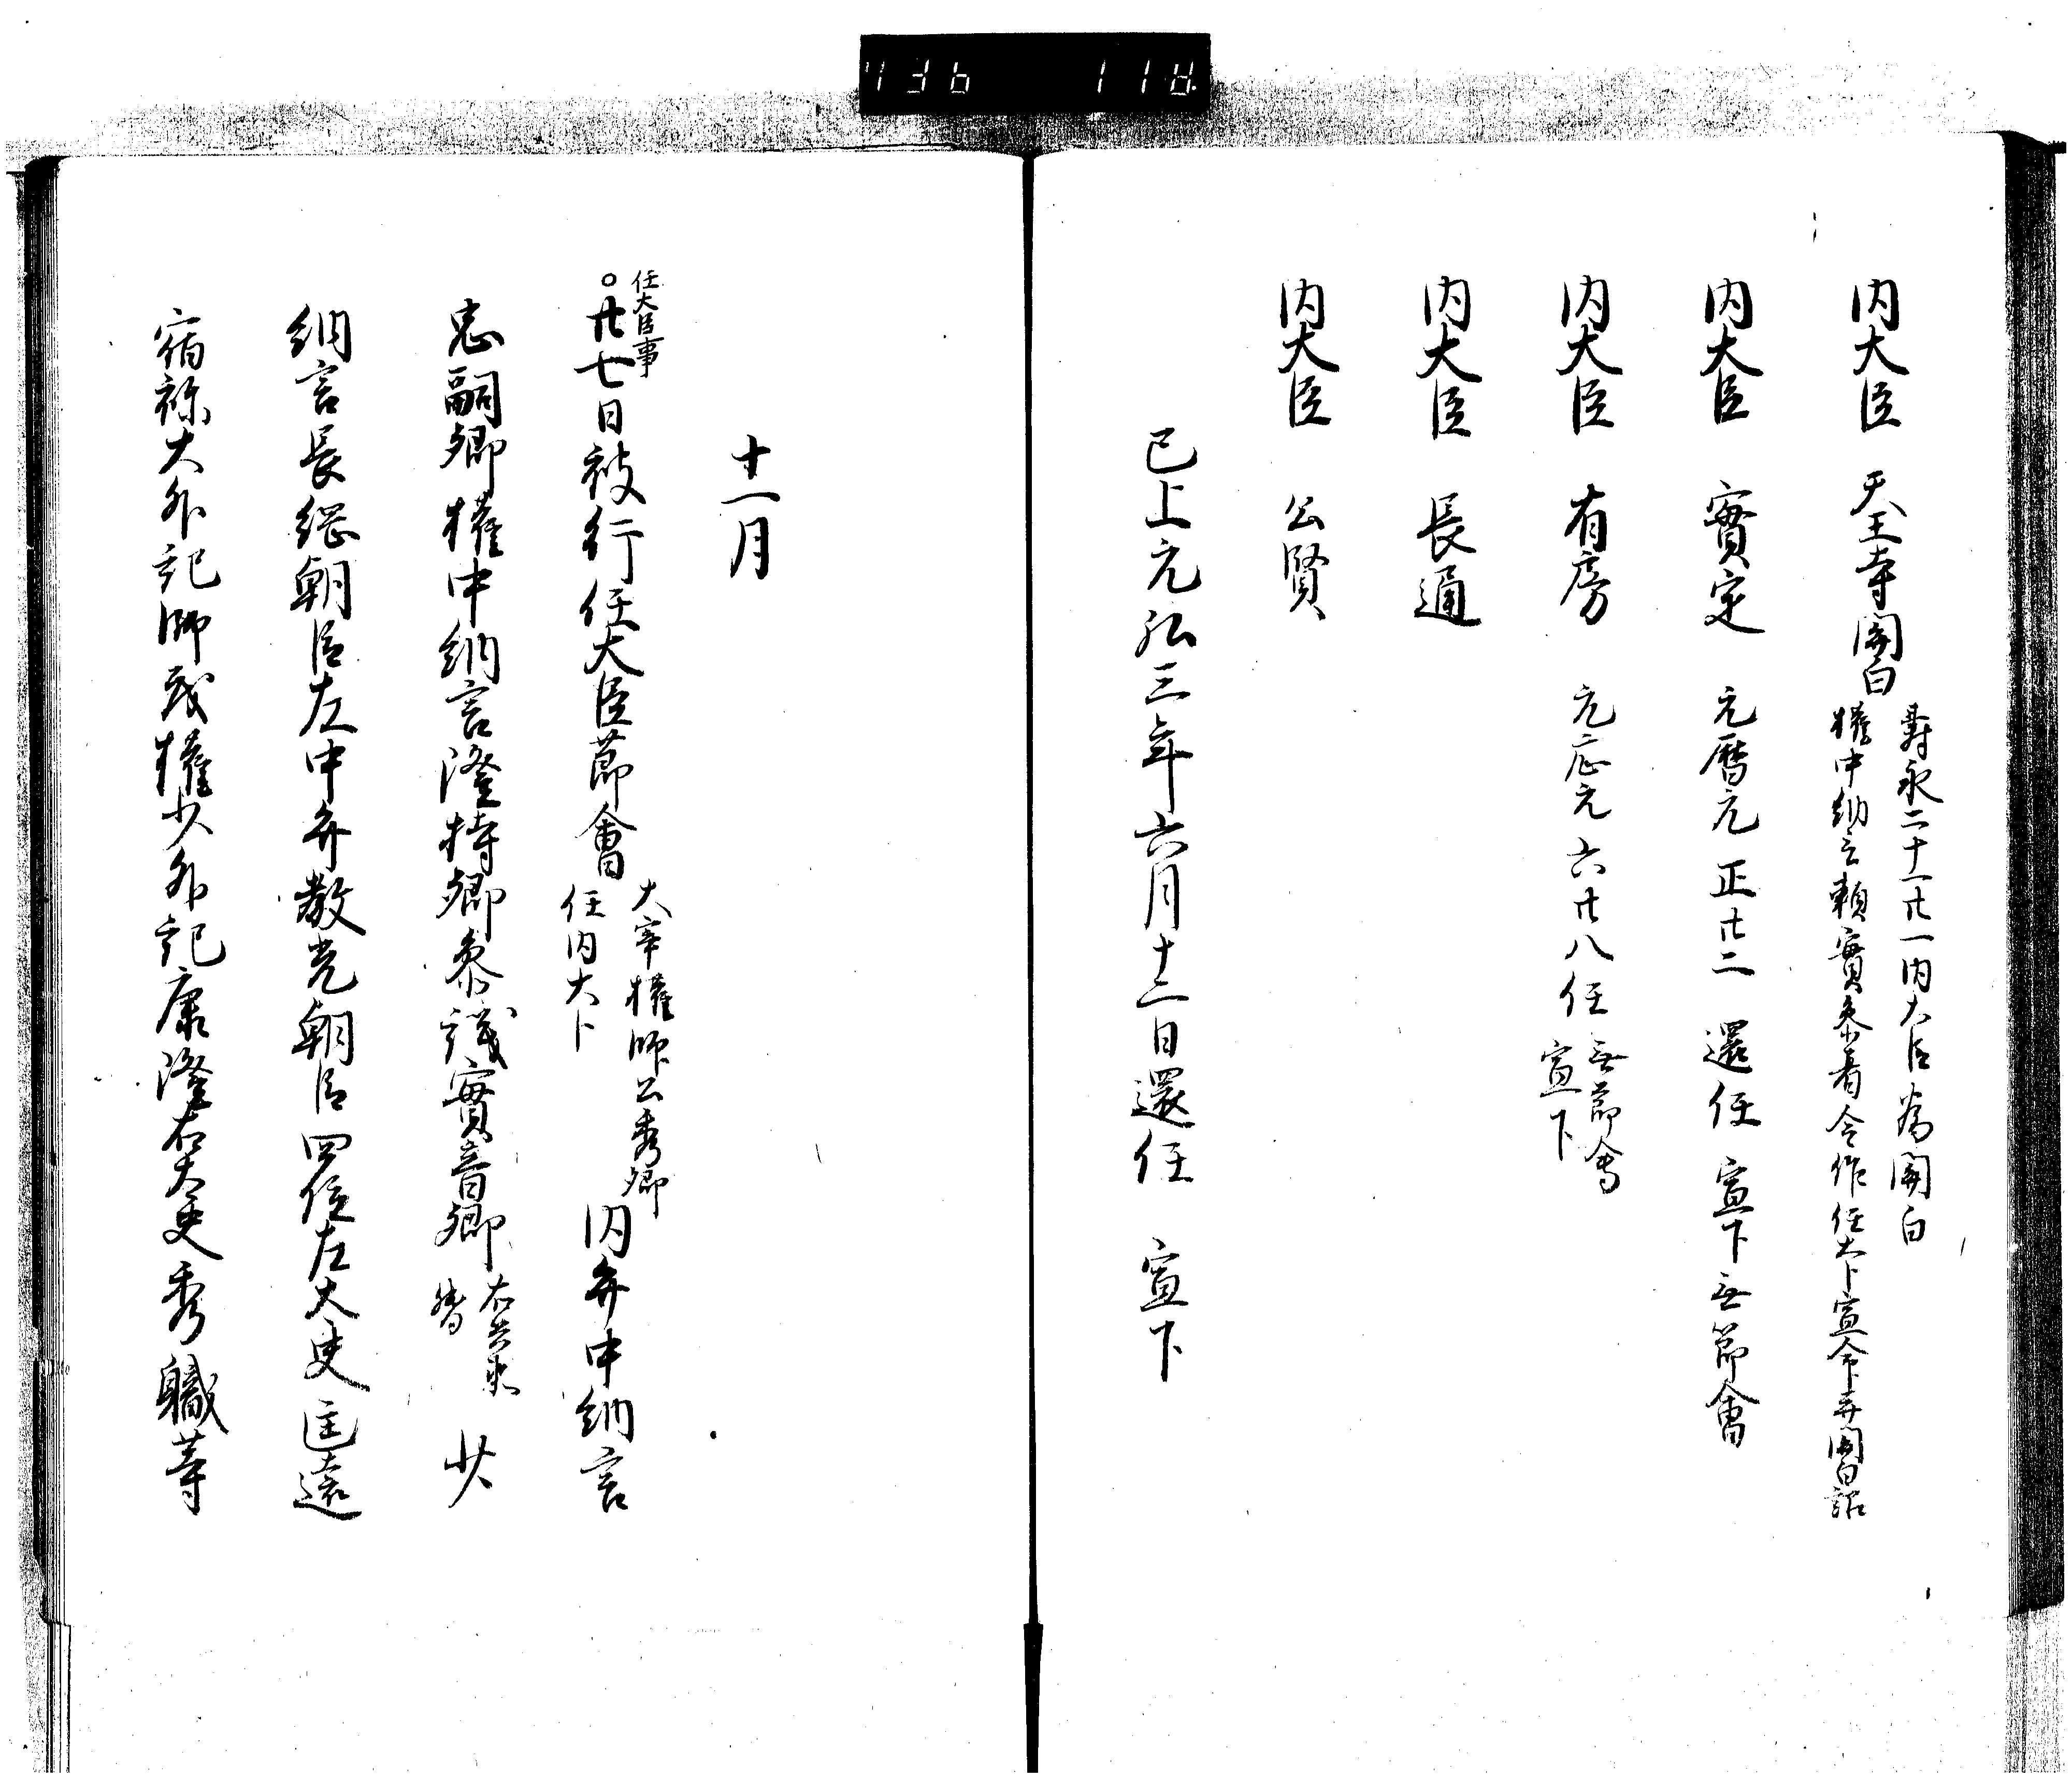 内大臣 天王寺関白
壽永二十一廿一内大臣為関白
権中納言頼實参着令作任大臣宣命并関白詔
内大臣 實定 元暦元正廿二還任 宣下無節會
内大臣 有房 元応元六廿八任 無節會
宣下
内大臣 長通
内大臣 公賢
已上元弘三年六月十二日還任 宣下
十一月
任大臣事
○廿七日被行任大臣節會 大宰権帥公秀卿
任内大卜 内弁中納言
忠嗣卿権中納言隆持卿参議實音卿 少
納言長綱朝臣左中弁教光朝臣四位左大史匡遠
宿祢大外記師茂権少外記康隆右大史秀職等
736 118